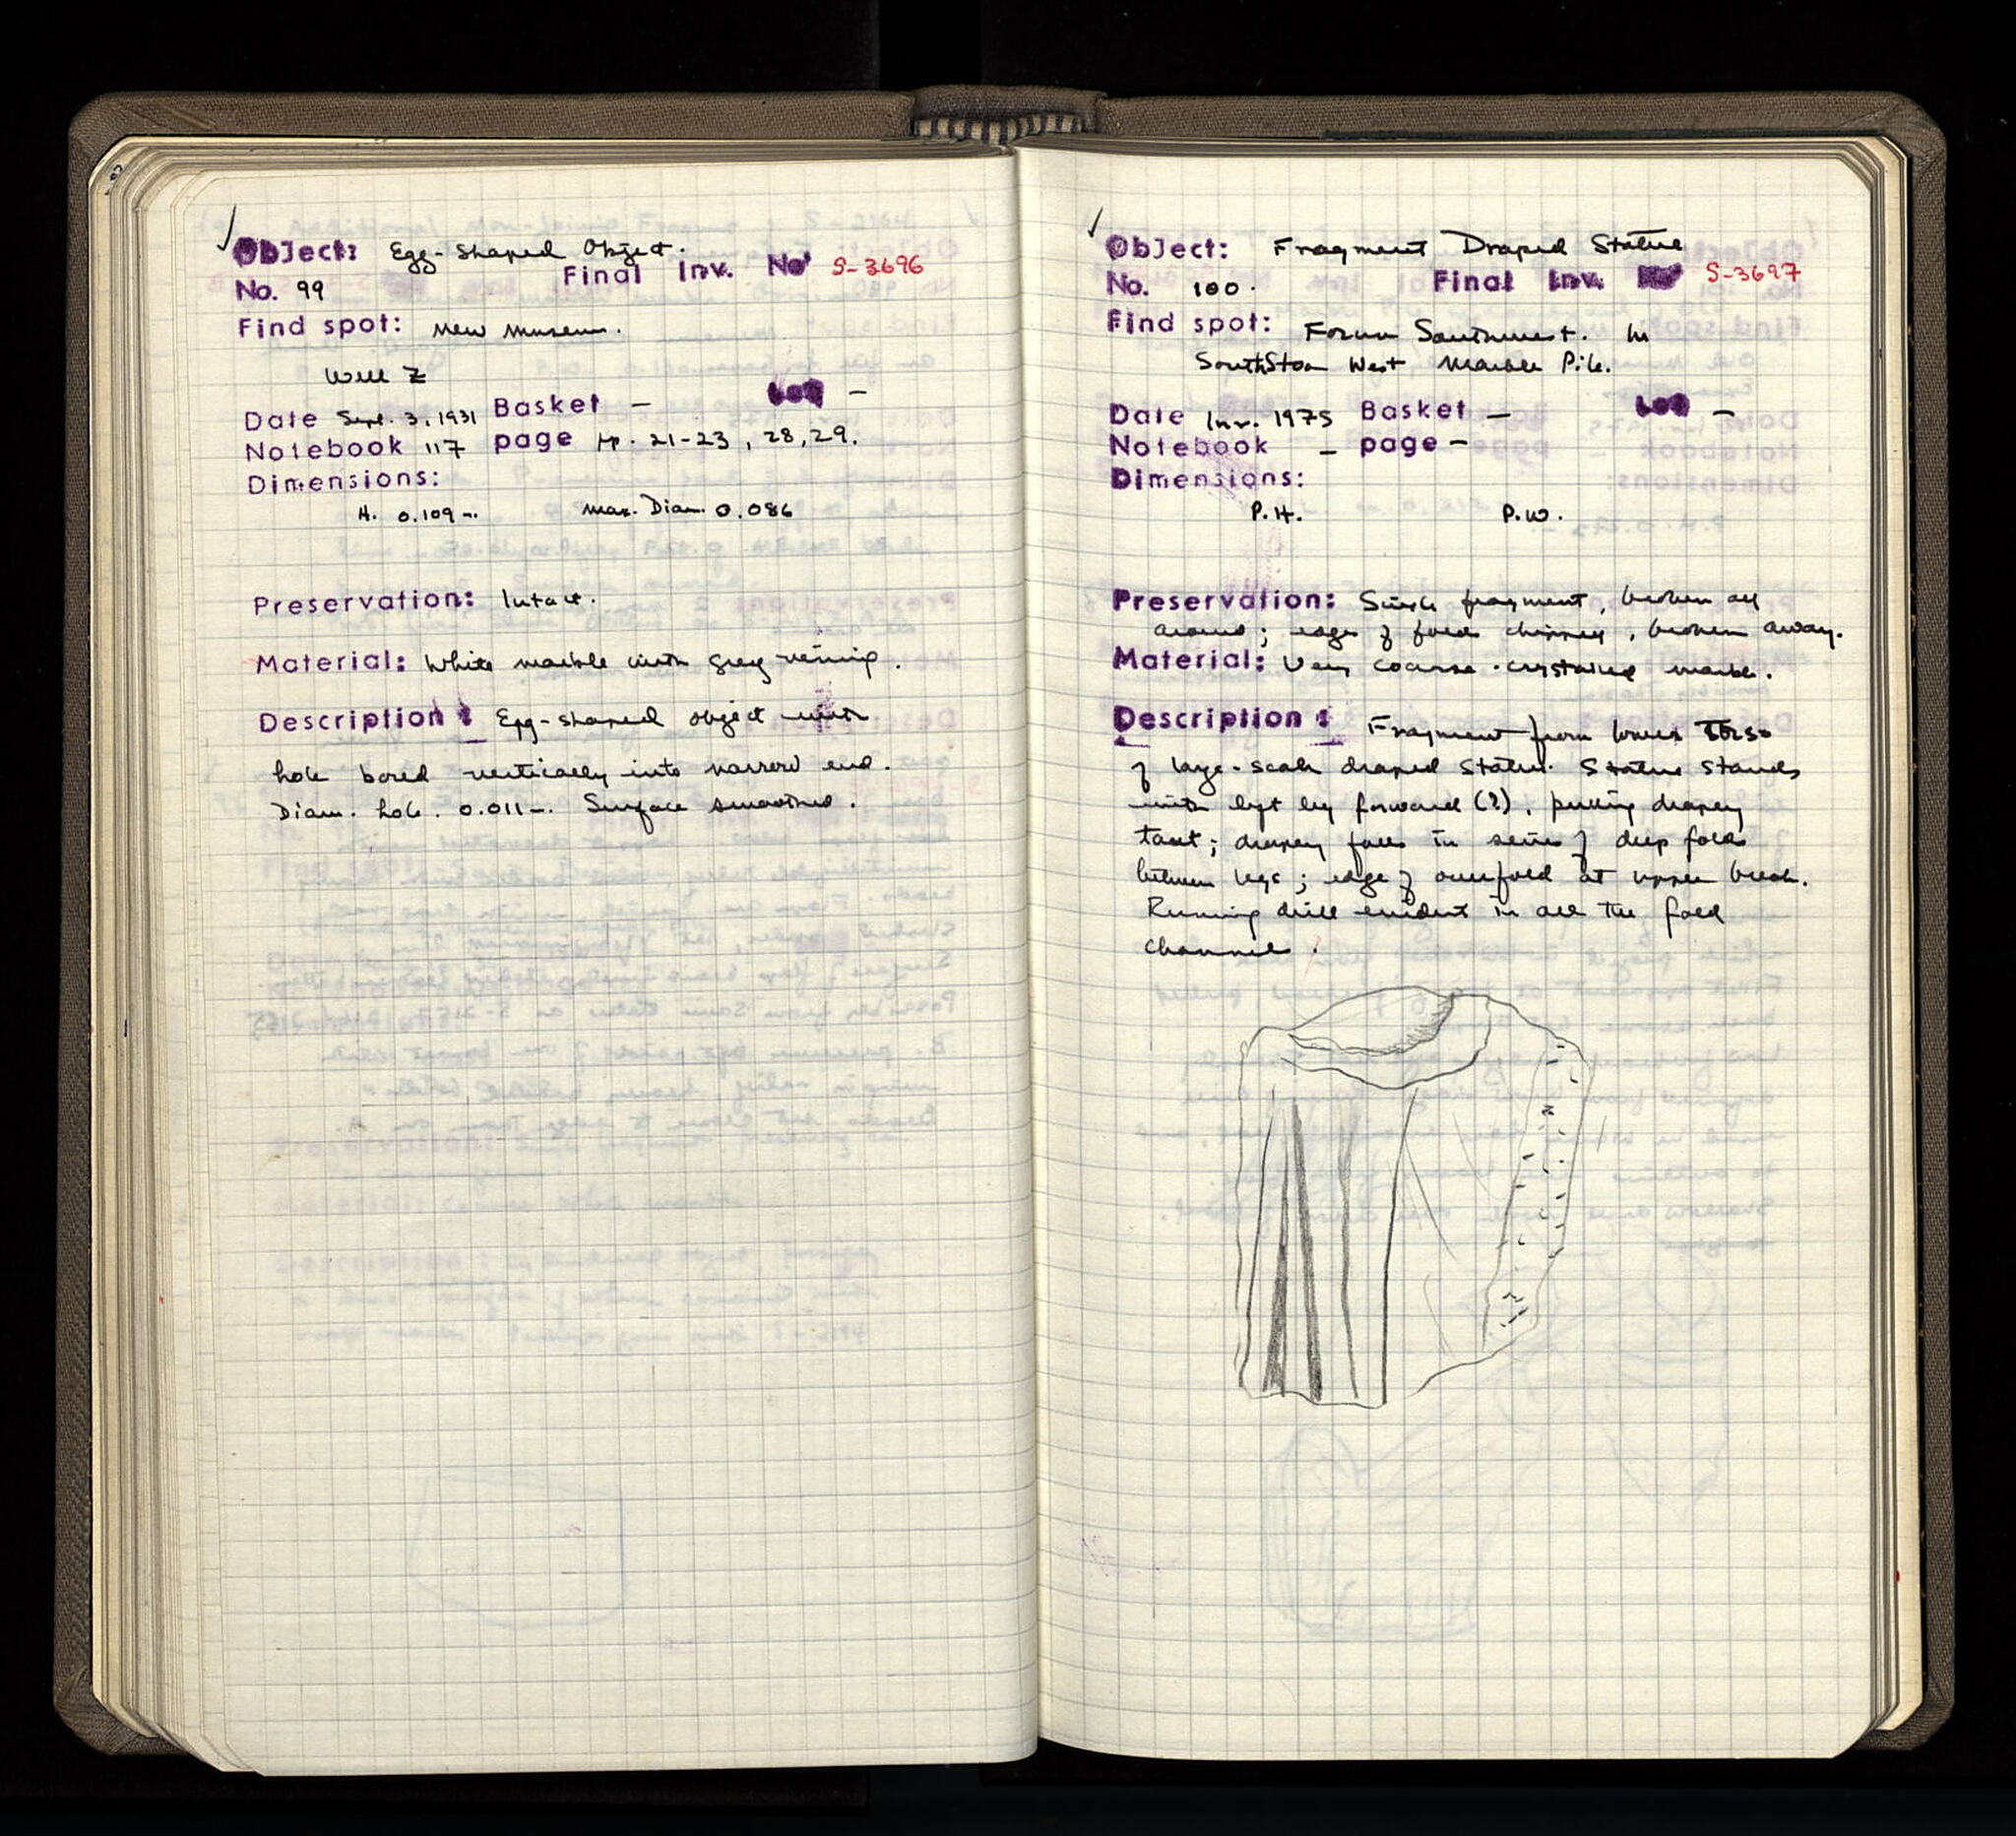 Object: Egg-shaped Object.
Final Inv. No S-3696
No. 99
Find spot: New Museum.
Well Z
Date Sept. 3, 1931 Basket – Lot –
Notebook 117 page pp. 21-23, 28, 29.
Dimensions:
H. 0.109 –. Max. Diam. 0.086
Preservation: Intact.
Material: White marble with grey veining.
Description: Egg-shaped object with
hole bored vertically into narrow end.
Diam. hole. 0.011 –. Surface smoothed.
Object: Fragment Draped Statue
No. 100. Final Inv. No S-3697
Find spot: Forum Southwest. In
South Stoa West Marble Pile.
Date Inv. 1975 Basket – Lot –
Notebook – page –
Dimensions:
P.H. P.W.
Preservation: Single fragment, broken all
around; edges of folds chipped, broken away.
Material: Very coarse-crystalled marble.
Description: Fragment from lower torso
of large-scale draped statue. Statue stands
with left leg forward (?), pulling drapery
taut; drapery falls in series of deep folds
between legs; edge of overfold at upper break.
Running drill evident in all the fold
channels.